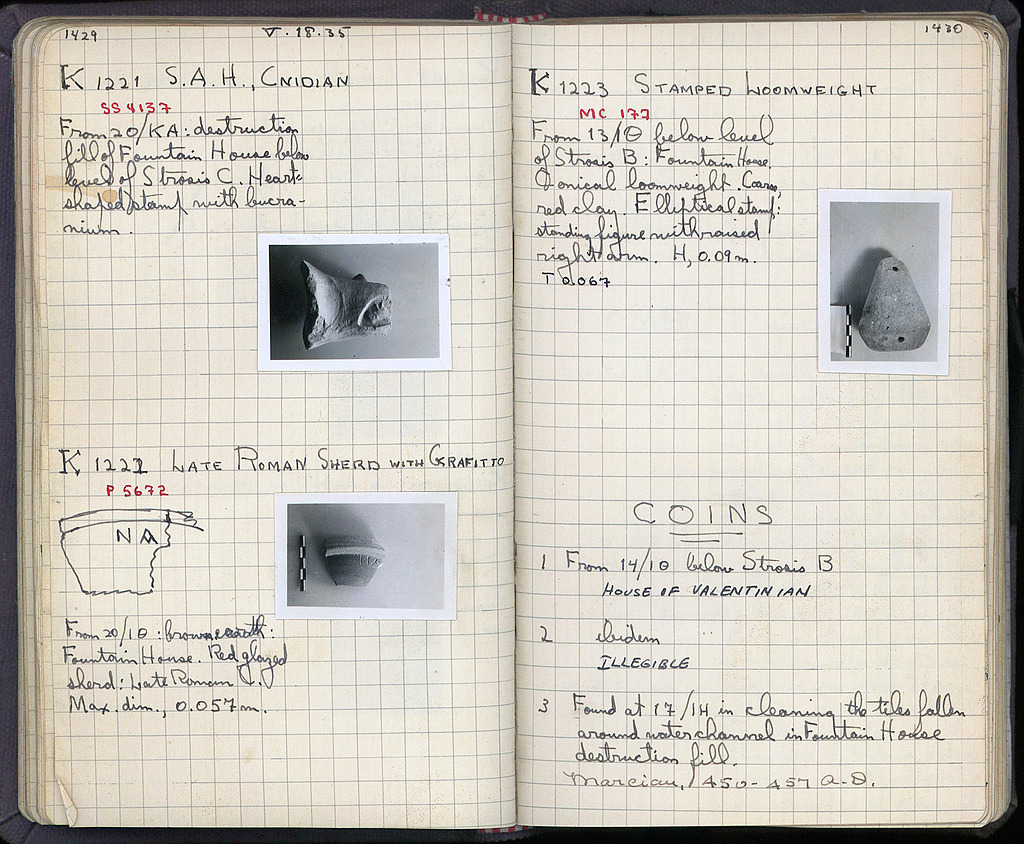 1429
V.18.35
K 1221 S.A.H., CNIDIAN
SS 4137
From 20/KA: destruction
fill of Fountain House below
level of Strosis C. Heart-
shaped stamp with bucra-
nium.
K 1222 LATE ROMAN SHERD WITH GRAFITTO
P 5672
NA
From 20/ΙΘ: brown earth:
Fountain House. Red glazed
sherd: Late Roman
Max. dim., 0.057m.
1430
K 1223 STAMPED LOOMWEIGHT
MC 177
From 13/Θ below level
of Strosis B: Fountain House.
Conical loomweight. Coarse,
red clay. Elliptical stamp:
standing figure with raised
right arm. H, 0.09m.
T 0.067
COINS
1 From 14/ΙΘ below Strosis B
HOUSE OF VALENTINIAN
2 ibidem
ILLEGIBLE
3 Found at 17/ΙΗ in cleaning the tiles fallen
around water channel in Fountain House
destruction fill.
Marcian, 450-457 A.D.